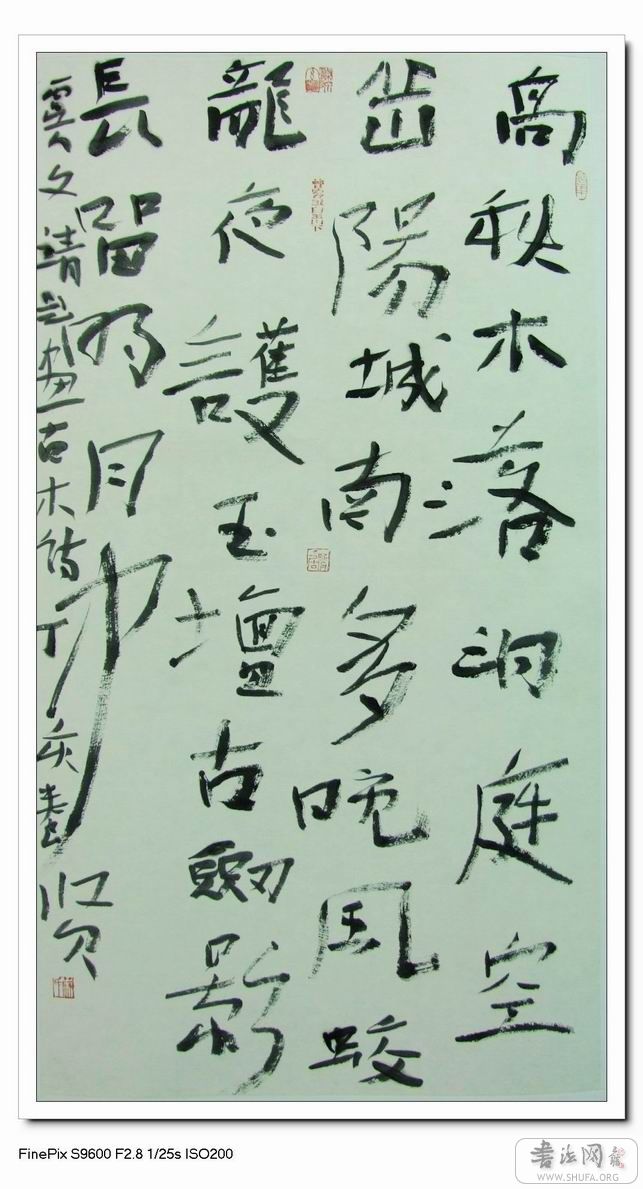 高秋木落洞庭空
岳陽城南多晚風蛟
龍夜護玉壇古劒影
長留明月中
虞文靖題画古木詩丁亥春
FinePix S9600 F2.8 1/25s ISO200
書法网
WWW.SHUFA.ORG